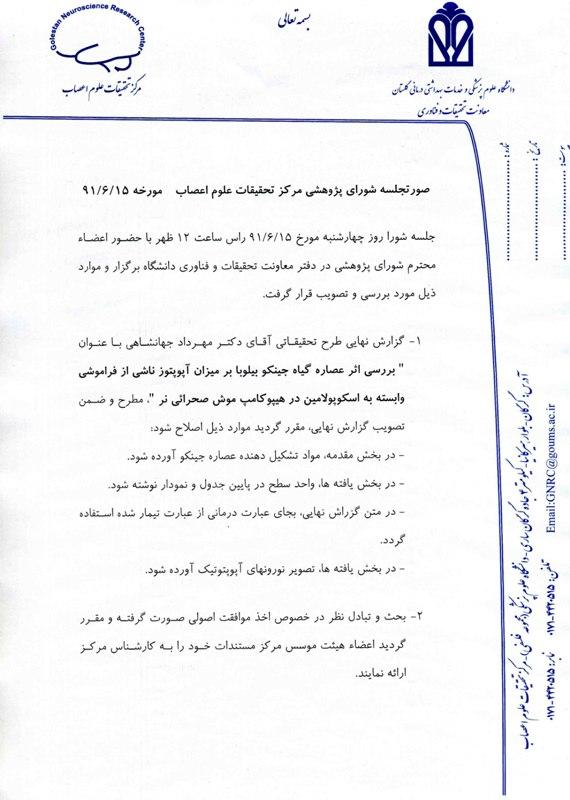 بسمه تعالی
Golestan Neuroscience Research Center
مرکز تحقیقات علوم اعصاب
دانشگاه علوم پزشکی و خدمات بهداشتی درمانی گلستان
معاونت تحقیقات و فناوری
شماره:
تاریخ:
پیوست:
صورتجلسه شورای پژوهشی مرکز تحقیقات علوم اعصاب مورخه ۹۱/۶/۱۵
جلسه شورا روز چهارشنبه مورخ ۹۱/۶/۱۵ راس ساعت ۱۲ ظهر با حضور اعضاء
محترم شورای پژوهشی در دفتر معاونت تحقیقات و فناوری دانشگاه برگزار و موارد
ذیل مورد بررسی و تصویب قرار گرفت.
۱- گزارش نهایی طرح تحقیقاتی آقای دکتر مهرداد جهانشاهی با عنوان
" بررسی اثر عصاره گیاه جینکو بیلوبا بر میزان آپوپتوز ناشی از فراموشی
وابسته به اسکوپولامین در هیپوکامپ موش صحرائی نر "، مطرح و ضمن
تصویب گزارش نهایی، مقرر گردید موارد ذیل اصلاح شود:
- در بخش مقدمه، مواد تشکیل دهنده عصاره جینکو آورده شود.
- در بخش یافته ها، واحد سطح در پایین جدول و نمودار نوشته شود.
- در متن گزراش نهایی، بجای عبارت درمانی از عبارت تیمار شده استفاده
گردد.
- در بخش یافته ها، تصویر نورونهای آپوپتوتیک آورده شود.
۲- بحث و تبادل نظر در خصوص اخذ موافقت اصولی صورت گرفته و مقرر
گردید اعضاء هیئت موسس مرکز مستندات خود را به کارشناس مرکز
ارائه نمایند.
آدرس: گرگان- بلوار هیرکانیا- کیلومتر ۲ جاده گرگان ساری- دانشگاه علوم پزشکی (مجموعه فلسفی)- مرکز تحقیقات علوم اعصاب
تلفن: ۴۴۲۰۵۱۵-۰۱۷۱ نمابر: ۴۴۲۰۵۱۵-۰۱۷۱
Email:GNRC@goums.ac.ir